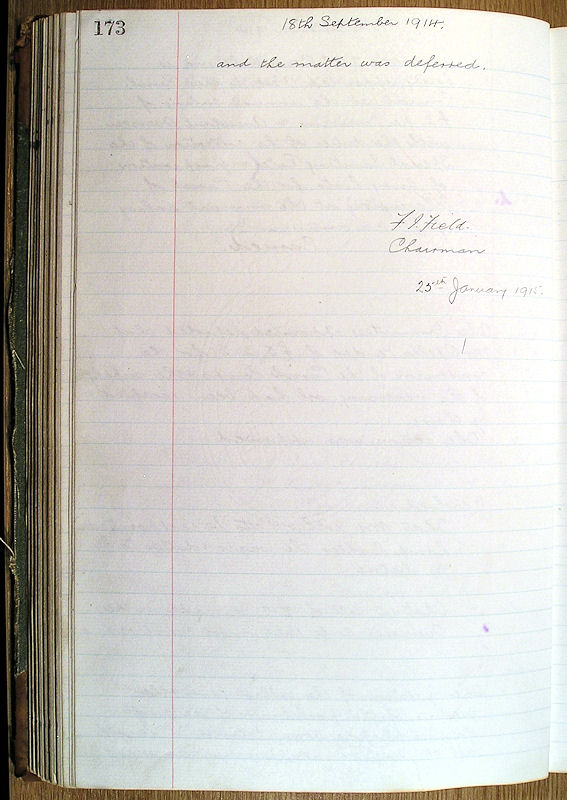 173
18th September 1914.
and the matter was deferred.
F. J. Field.
Chairman
25th January 1915.